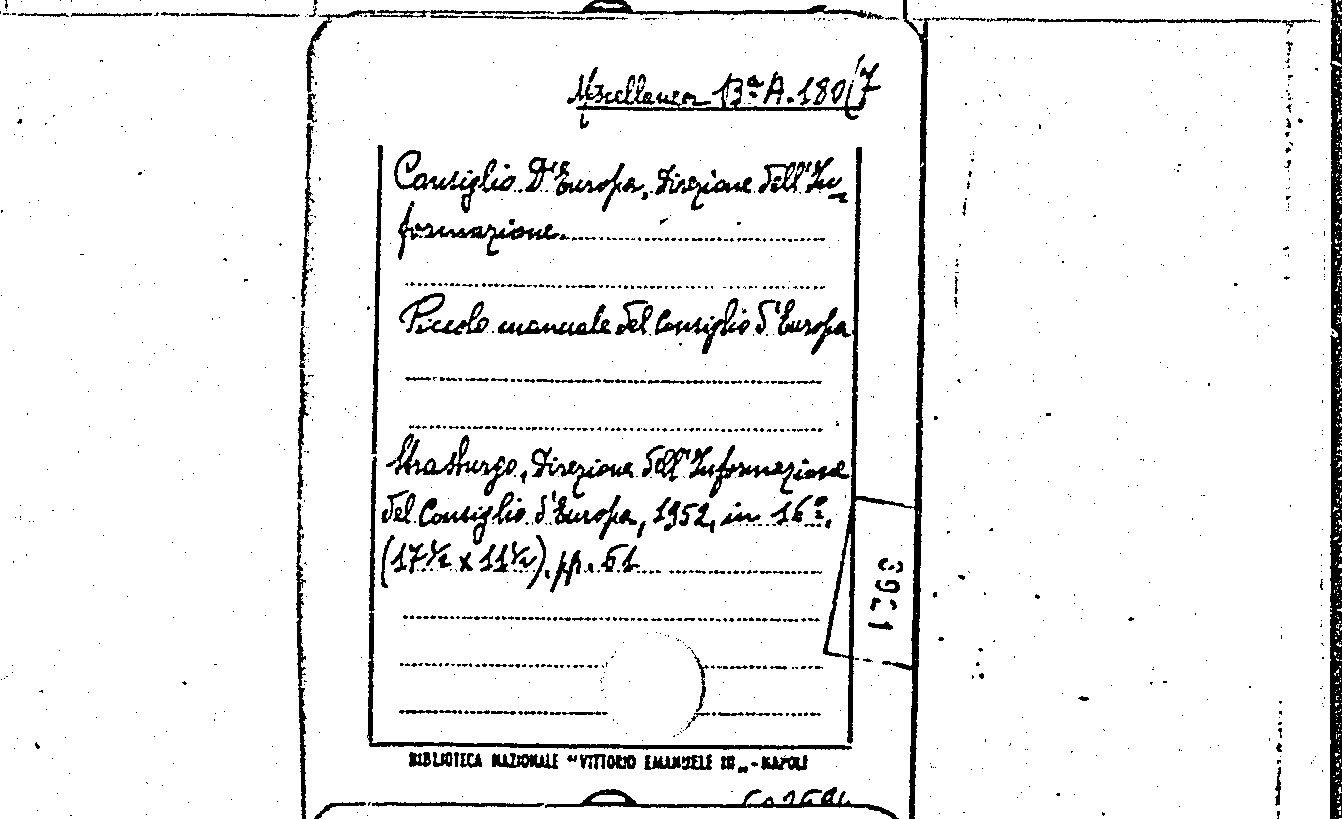 Miscellanea Bª A. 180/7
Consiglio D'Europa, Direzione dell'In-
formazione.
Piccolo manuale del Consiglio d'Europa
Strasburgo, Direzione dell'Informazione
del Consiglio d'Europa, 1952, in 16º.
(17½ x 11½). pp. 61
3921
BIBLIOTECA NAZIONALE "VITTORIO EMANUELE III„ - NAPOLI